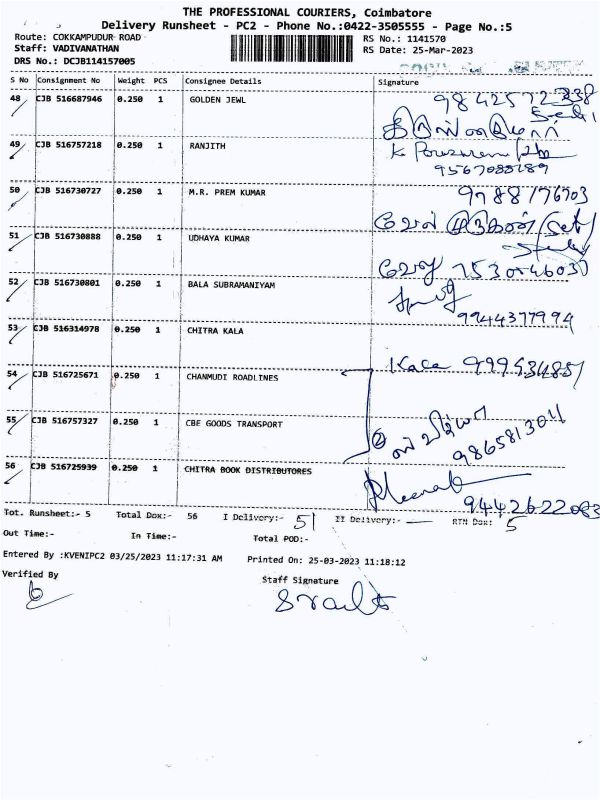 THE PROFESSIONAL COURIERS, Coimbatore
Delivery Runsheet - PC2 - Phone No.:0422-3505555 - Page No.:5
Route: COKKAMPUDUR ROAD
RS No.: 1141570
Staff: VADIVANATHAN
RS Date: 25-Mar-2023
DRS No.: DCJB114157005
S No Consignment No Weight PCS Consignee Details Signature
48 CJB 516687946 0.250 1 GOLDEN JEWL
9842572338
49 CJB 516757218 0.250 1 RANJITH
50 CJB 516730727 0.250 1 M.R. PREM KUMAR
9788176703
51 CJB 516730888 0.250 1 UDHAYA KUMAR
52 CJB 516730801 0.250 1 BALA SUBRAMANIYAM
9944377994
53 CJB 516314978 0.250 1 CHITRA KALA
Kala
54 CJB 516725671 0.250 1 CHANMUDI ROADLINES
55 CJB 516757327 0.250 1 CBE GOODS TRANSPORT
9865813011
56 CJB 516725939 0.250 1 CHITRA BOOK DISTRIBUTORES
9442622083
Tot. Runsheet:- 5 Total Dox:- 56 I Delivery:- 51 II Delivery:- — RTN Dox: 5
Out Time:- In Time:- Total POD:-
Entered By :KVENIPC2 03/25/2023 11:17:31 AM Printed On: 25-03-2023 11:18:12
Verified By
Staff Signature